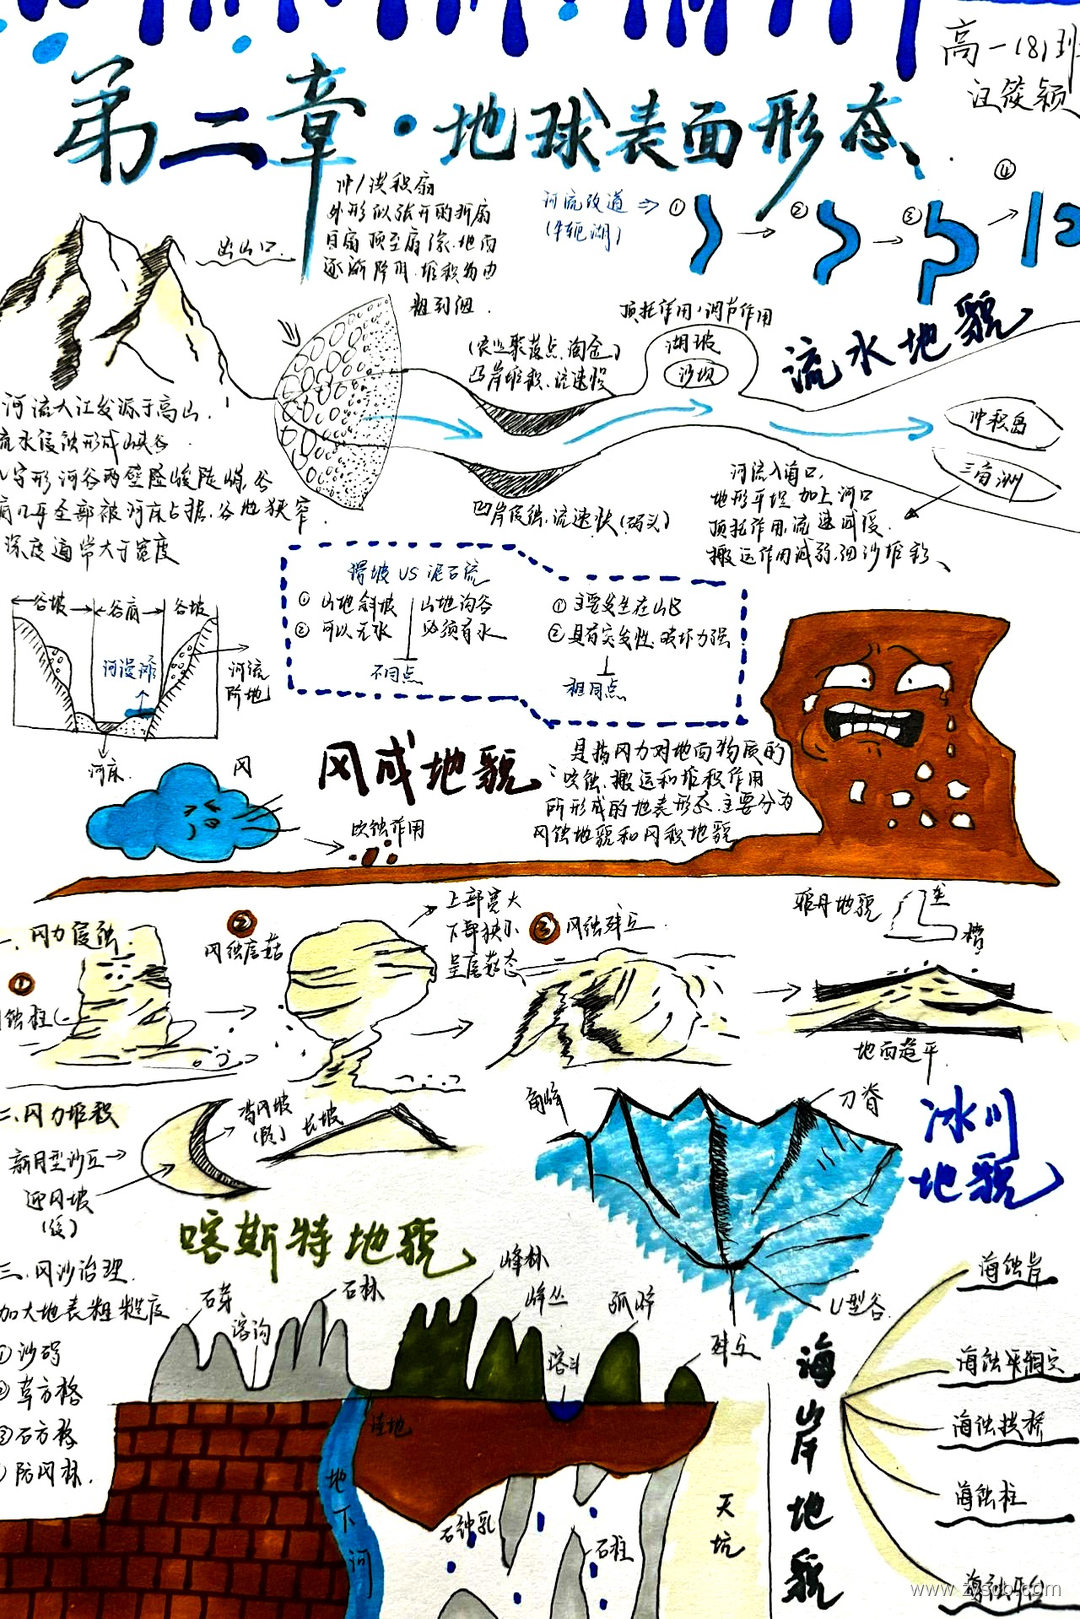 高一(8)班
汪筱颖
第二章·地球表面形态
冲/洪积扇
外形似张开的折扇
自扇顶至扇缘,地面
逐渐降明,堆积物由
粗到细.
出山口
河流改道
(牛轭湖)
①
②
③
④
流水地貌
顶托作用,调节作用
湖坡
沙坝
凸岸堆积,流速慢
凹岸侵蚀,流速快(码头)
冲积岛
三角洲
河流入海口,
地形平坦加上河口
顶托作用,流速减缓
搬运作用减弱,泥沙堆积、
河流大江发源于高山.
流水侵蚀形成峡谷.
字形河谷两壁陡峻陡峭,谷
几乎全部被河床占据,谷地狭窄.
深度通常大于宽度
谷坡
谷肩
谷坡
河漫滩
河流
阶地
河床
滑坡 VS 泥石流
①山地斜坡
②可以无水
山地沟谷
必须有水
不同点
①主要发生在山区
②具有突发性,破坏力强
相同点
风成地貌
是指风力对地面物质的
吹蚀、搬运和堆积作用
所形成的地表形态,主要分为
风蚀地貌和风积地貌
风
吹蚀作用
一、风力侵蚀
①
蚀柱
②
风蚀蘑菇
上部宽大
下部狭小
呈蘑菇态
③
风蚀残丘
雅丹地貌
垄
槽
地面趋平
二、风力堆积
新月型沙丘
迎风坡
(缓)
背风坡
(陡)
长坡
角峰
刀脊
冰川
地貌
U型谷
喀斯特地貌
三、风沙治理
加大地表粗糙度
①沙砖
草方格
③石方格
防风林.
石芽
溶沟
石林
峰林
峰丛
孤峰
溶斗
残丘
洼地
地下河
石钟乳
石柱
天坑
海岸地貌
海蚀岸
海蚀拱桥
海蚀柱
海蚀平台